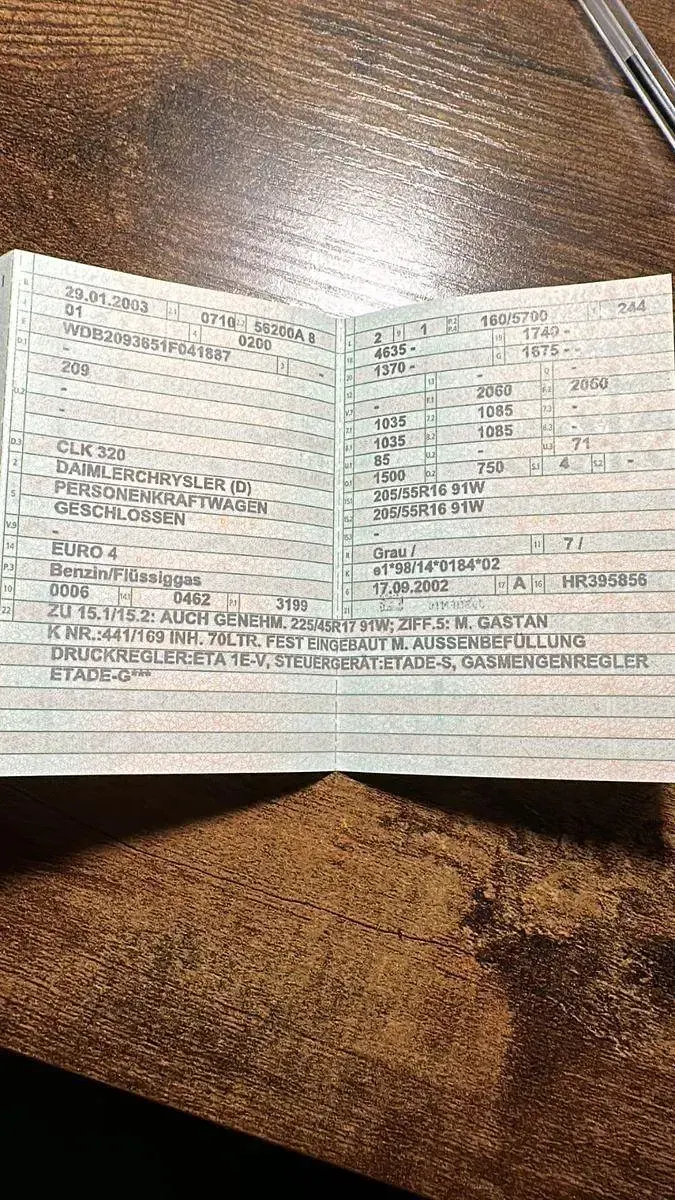 B 29.01.2003 2.1 0710 2.2 56200A 8
J 01 4 0200
E WDB2093651F041887 3 -
D.1 -
209
D.2 -
-
D.3 CLK 320
2 DAIMLERCHRYSLER (D)
5 PERSONENKRAFTWAGEN
GESCHLOSSEN
V.9 -
14 EURO 4
P.3 Benzin/Flüssiggas
10 0006 14.1 0462 P.1 3199
L 2 9 1 P.2 P.4 160/5700 T 244
18 4635 - 19 1740 -
20 1370 - G 1675 - -
12 - 13 - Q -
V.7 - F.1 2060 F.2 2060
7.1 1035 7.2 1085 7.3 -
8.1 1035 8.2 1085 8.3 -
U.1 85 U.2 - U.3 71
O.1 1500 O.2 750 S.1 4 S.2 -
15.1 205/55R16 91W
15.2 205/55R16 91W
15.3 -
R Grau / 11 7 /
K e1*98/14*0184*02
6 17.09.2002 17 A 16 HR395856
21
22 ZU 15.1/15.2: AUCH GENEHM. 225/45R17 91W; ZIFF.5: M. GASTAN
K NR.:441/169 INH. 70LTR. FEST EINGEBAUT M. AUSSENBEFÜLLUNG
DRUCKREGLER:ETA 1E-V, STEUERGERÄT:ETADE-S, GASMENGENREGLER
ETADE-G***